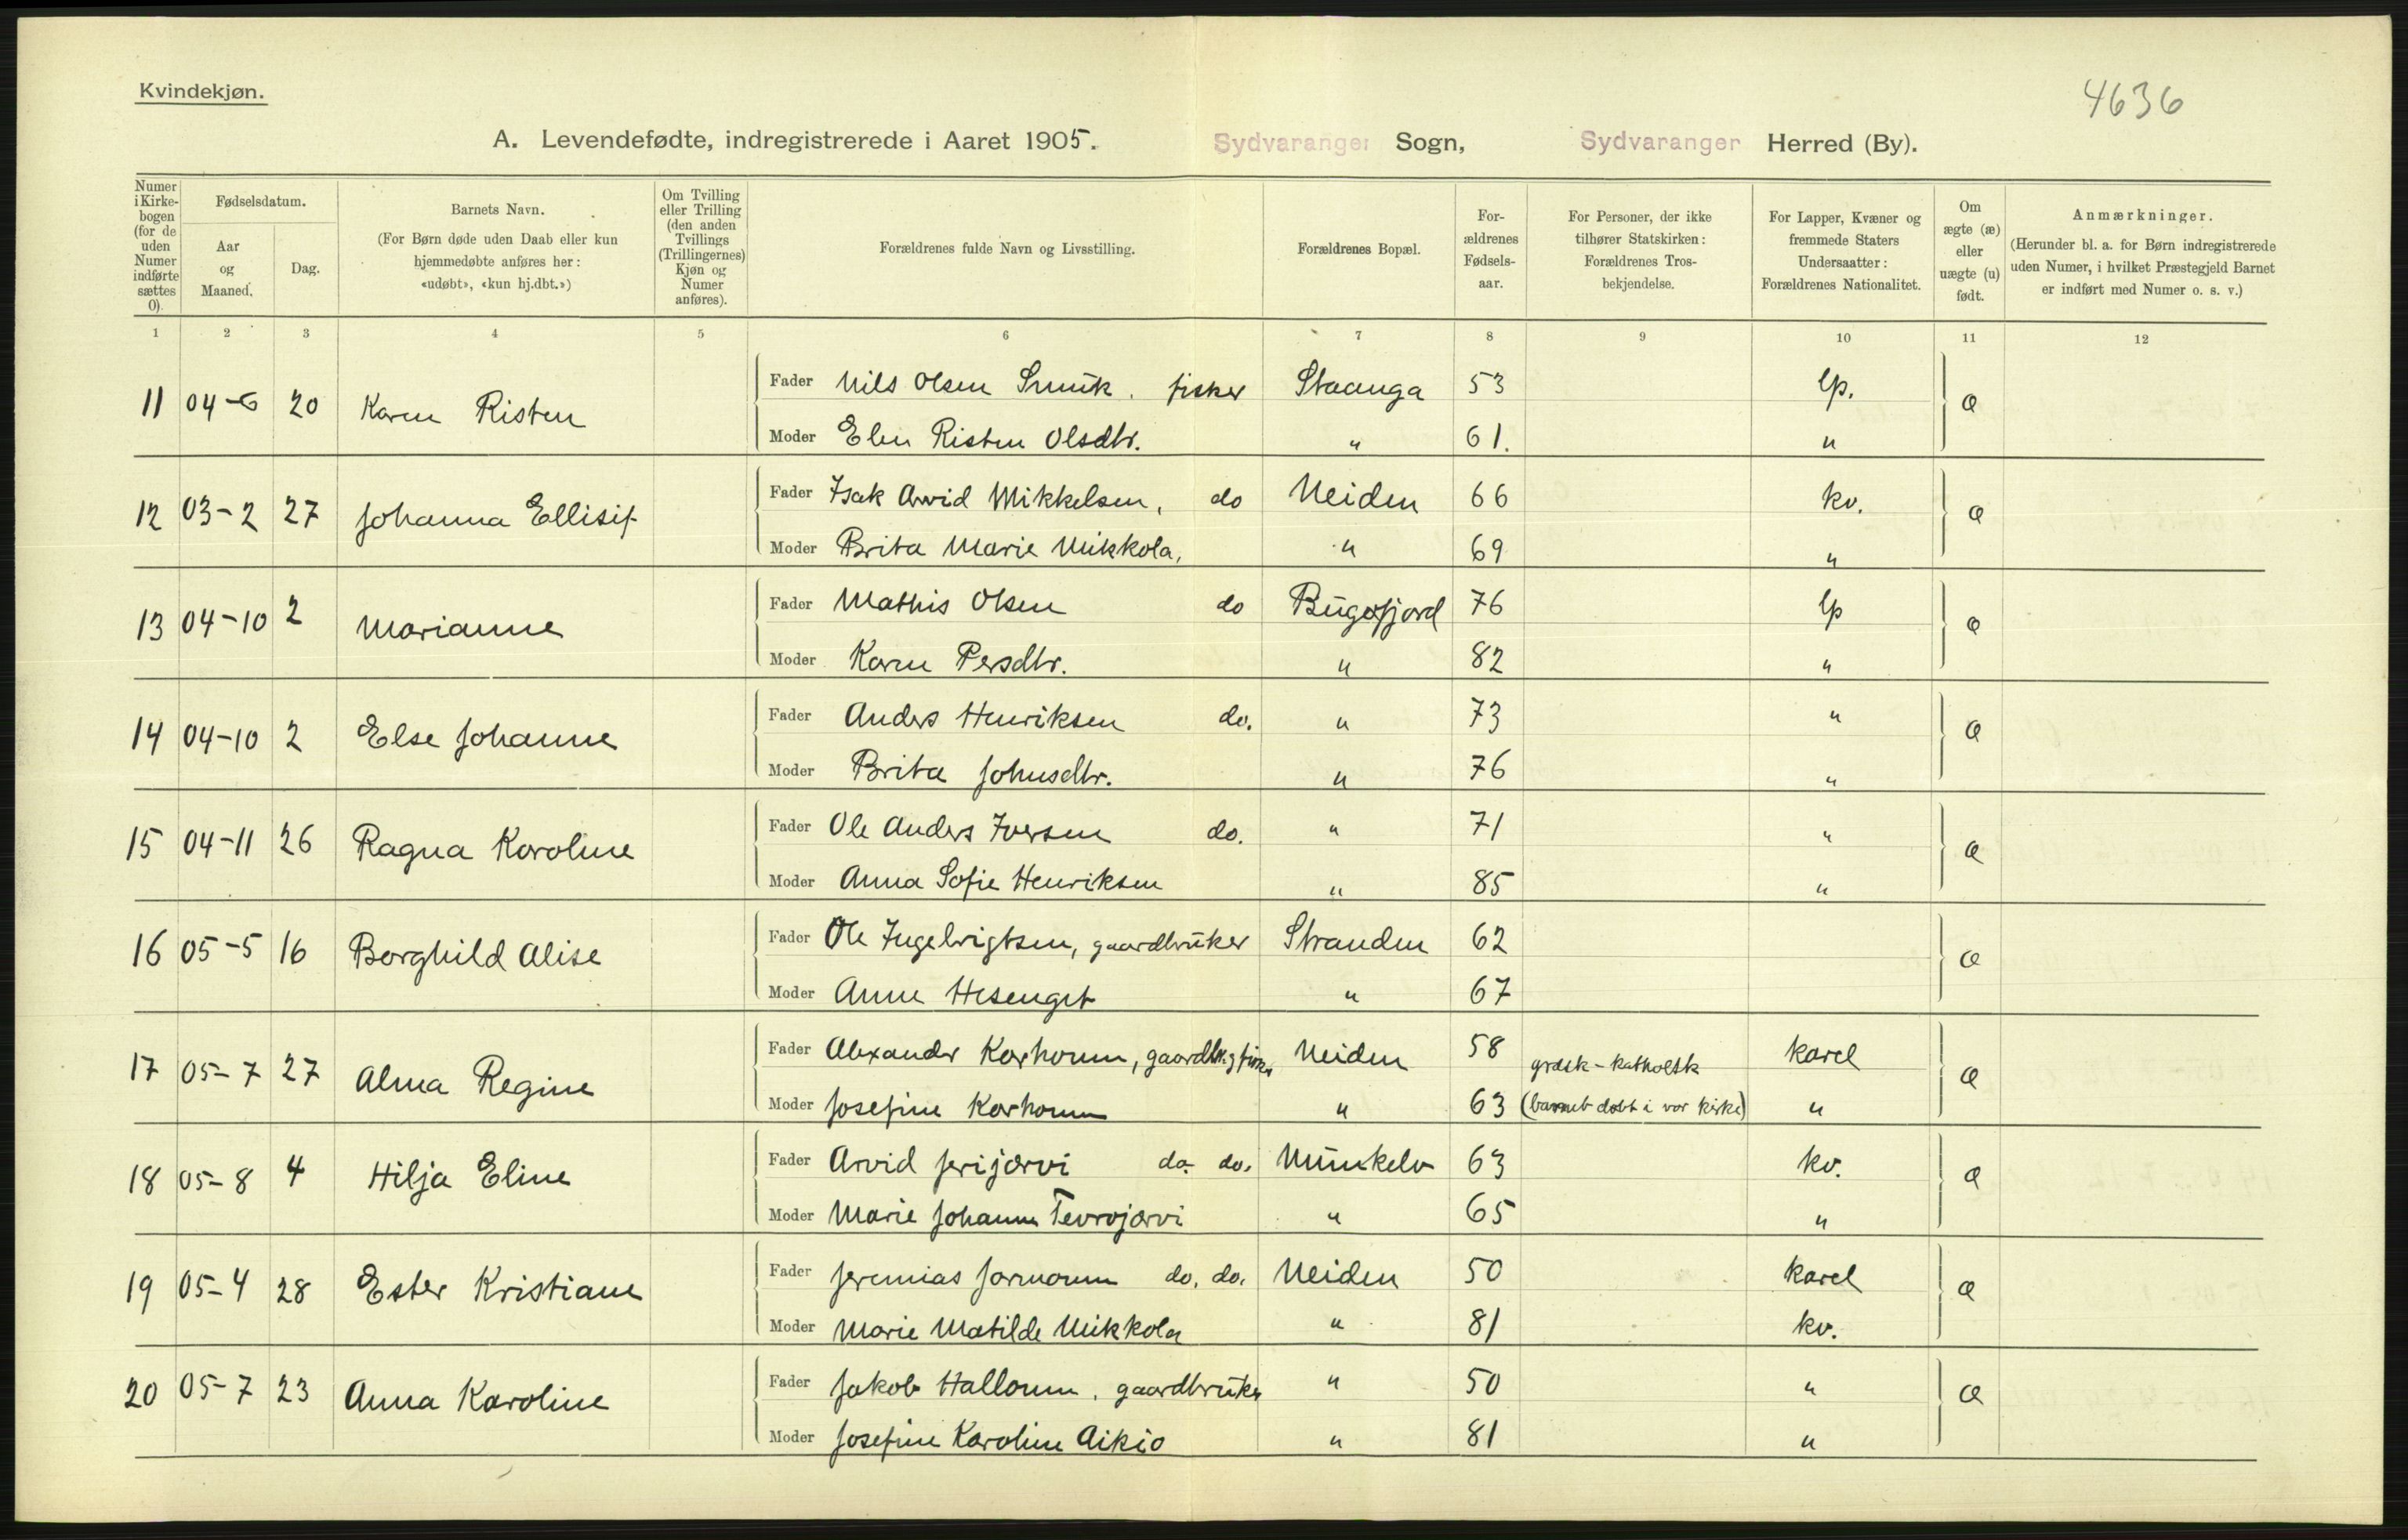 4636
Kvindekjøn.
A. Levendefødte, indregistrerede i Aaret 1905. Sydvaranger Sogn, Sydvaranger Herred (By).
Numer i Kirkebogen (for de uden Numer indførte sættes 0).
Fødselsdatum.
Aar og Maaned.
Dag.
Barnets Navn.
(For Børn døde uden Daab eller kun hjemmedøbte anføres her: «udøbt», «kun hj.dbt.»)
Om Tvilling eller Trilling (den anden Tvillings (Trillingernes) Kjøn og Numer anføres).
Forældrenes fulde Navn og Livsstilling.
Forældrenes Bopæl.
Forældrenes Fødselsaar.
For Personer, der ikke tilhører Statskirken: Forældrenes Trosbekjendelse.
For Lapper, Kvæner og fremmede Staters Undersaatter: Forældrenes Nationalitet.
Om ægte (æ) eller uægte (u) født.
Anmærkninger.
(Herunder bl. a. for Børn indregistrerede uden Numer, i hvilket Præstegjeld Barnet er indført med Numer o. s. v.)
1 2 3 4 5 6 7 8 9 10 11 12
11 04-6 20 Karen Risten Fader Nils Olsen Smuk. fisker Staanga 53 lp. æ
Moder Elen Risten Olsdtr. " 61. "
12 03-2 27 Johanna Ellisif Fader Isak Arvid Mikkelsen, do Neiden 66 kv. æ
Moder Brita Marie Mikkola, " 69 "
13 04-10 2 Marianne Fader Mathis Olsen do Bugøfjord 76 lp æ
Moder Karen Persdtr. " 82 "
14 04-10 2 Else Johanne Fader Anders Henriksen do. " 73 " æ
Moder Brita Johnsdtr. " 76 "
15 04-11 26 Ragna Karoline Fader Ole Anders Iversen do. " 71 " æ
Moder Anna Sofie Henriksen " 85 "
16 05-5 16 Borghild Alise Fader Ole Ingebrigtsen, gaardbruker Stranden 62 æ
Moder Anne Hesenget " 67
17 05-7 27 Alma Regine Fader Alexander Korhonen, gaardbr. og fisker Neiden 58 græsk-katholsk karel æ
Moder Josefine Korhonen " 63 (barnet døbt i vor kirke) "
18 05-8 4 Hilja Eline Fader Arvid Jerijærvi do. do. Munkelv 63 kv. æ
Moder Marie Johanne Tevrojærvi " 65 "
19 05-4 28 Ester Kristiane Fader Jeremias Jormonen do. do. Neiden 50 karel æ
Moder Marie Matilde Mikkola " 81 kv.
20 05-7 23 Anna Karoline Fader Jakob Hallonen, gaardbruker " 50 " æ
Moder Josefine Karoline Aikio " 81 "